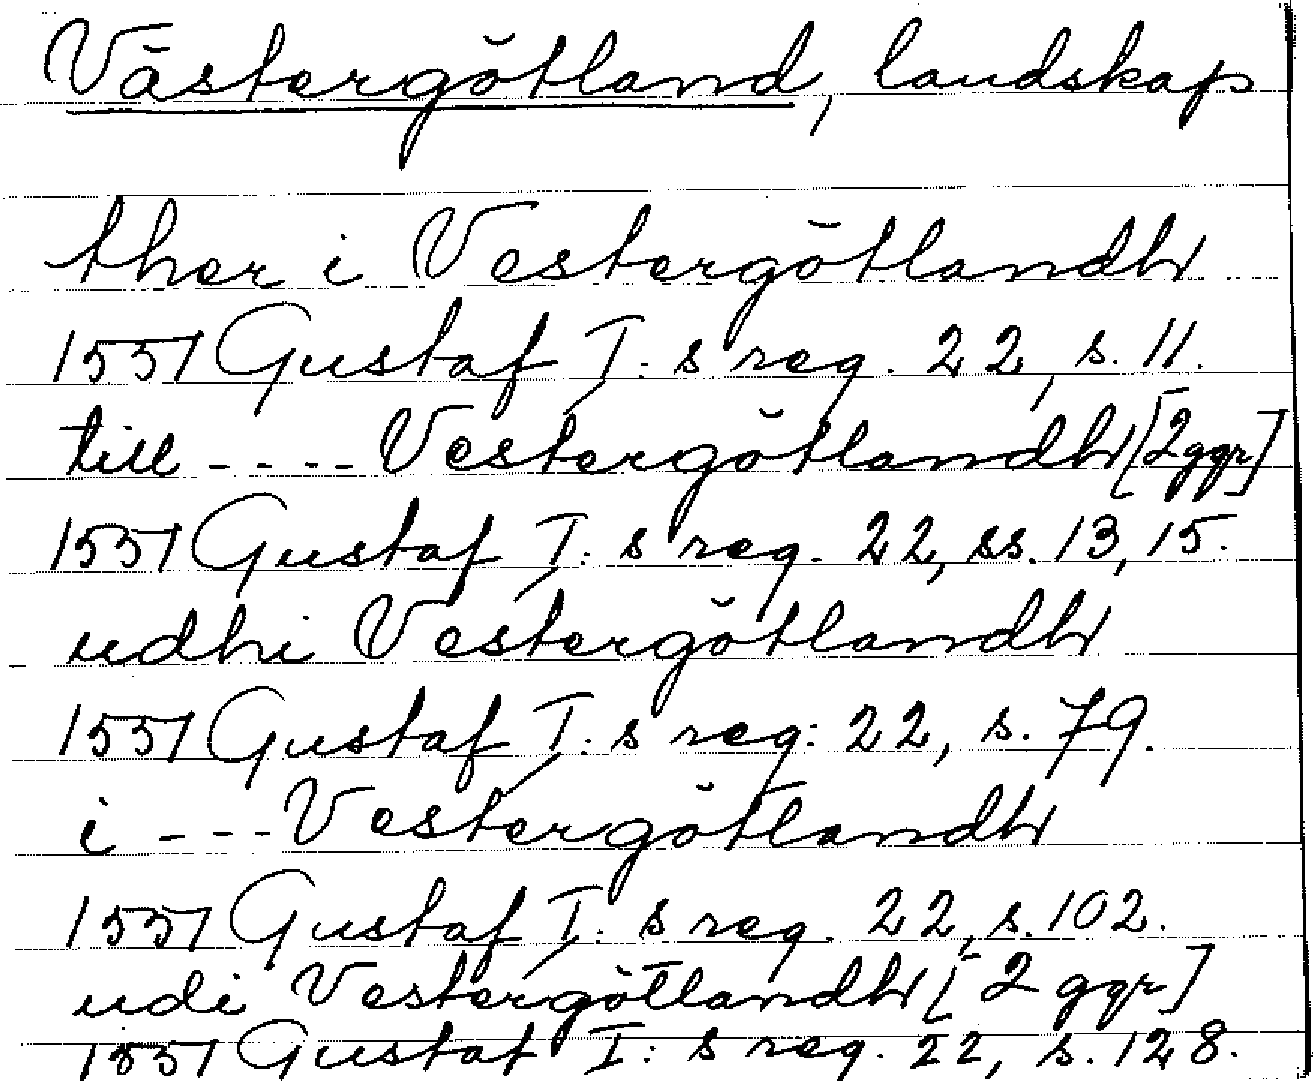 Västergötland, landskap
ther i Vestergötlandh
1551 Gustaf I:s reg. 22, s. 11.
till - - - - Vestergötlandh [2 ggr]
1551 Gustaf I:s reg. 22, ss. 13, 15.
udhi Vestergötlandh
1551 Gustaf I:s reg: 22, s. 79.
i - - - Vestergötlandh
1551 Gustaf I:s reg. 22, s. 102.
udi Vestergötlandh [2 ggr]
1551 Gustaf I:s reg. 22, s. 128.